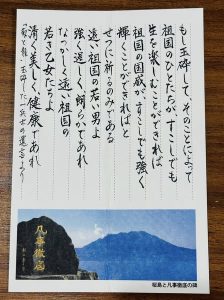 もし玉砕して、そのことによって
祖国のひとたちが、すこしでも
生を楽しむことができれば
祖国の国威が、すこしでも強く
輝くことができればと
せつに祈るのみである
遠い祖国の若い男よ
強く逞しく、朗らかであれ
なつかしく遠い祖国の
若き乙女たちよ
清く美しく、健康であれ
一兵士の遺言より
凡事徹底
桜島と凡事徹底の碑